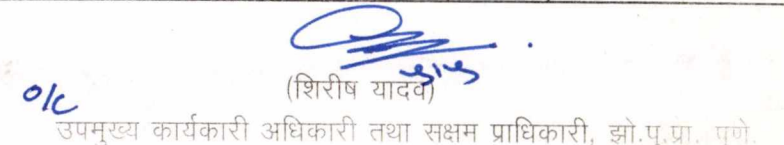 (शिरीष यादव)
O/C
उपमुख्य कार्यकारी अधिकारी तथा सक्षम प्राधिकारी, झो.पु.प्रा. पुणे.